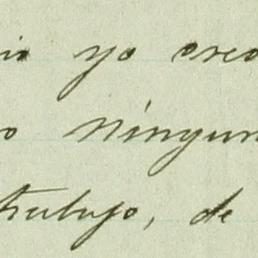 io yo creo
o ningun
trabajo, de